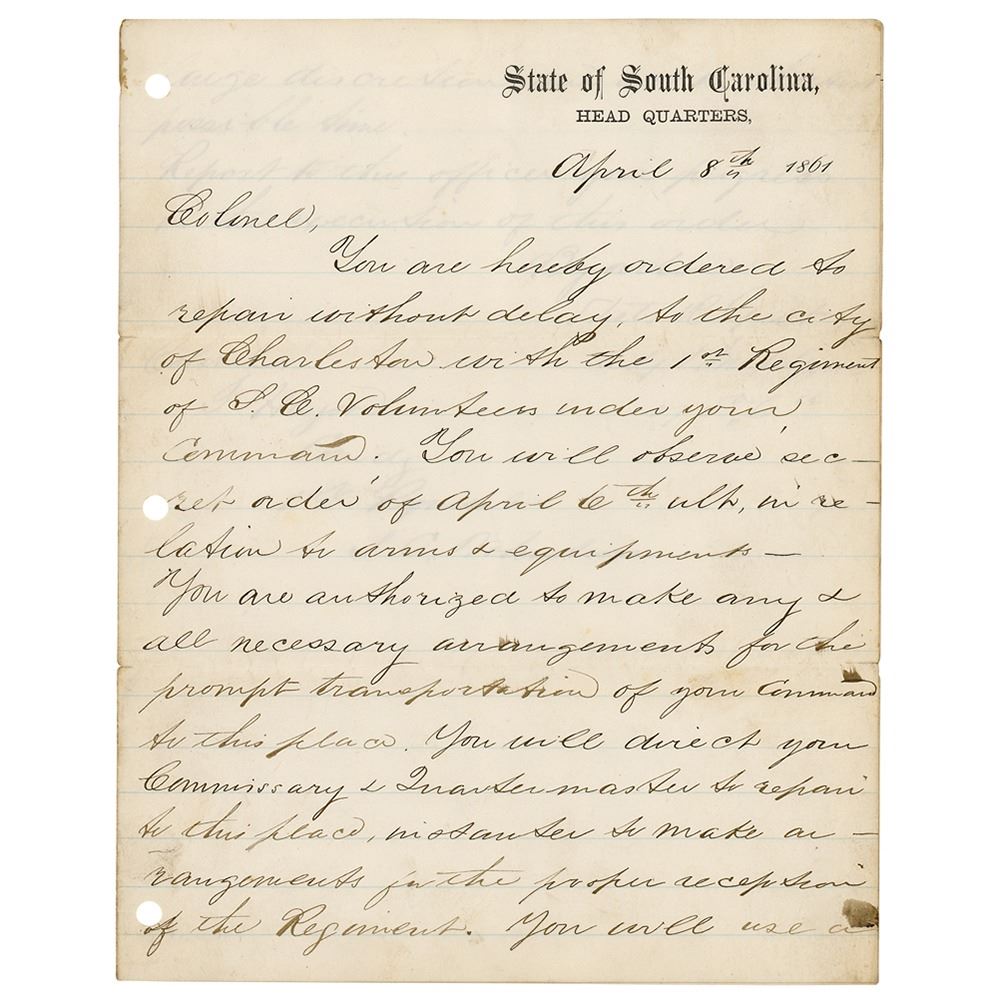 State of South Carolina,
HEAD QUARTERS,
April 8th 1861
Colonel,
You are hereby ordered to
repair without delay, to the city
of Charleston with the 1st Regiment
of S. C. Volunteers under your
Command. You will observe sec-
ret order of April 6th ult, in re-
lation to arms & equipments —
You are authorized to make any &
all necessary arrangements for the
prompt transportation of your Command
to this place. You will direct your
Commissary & Quartermaster to repair
to this place, instanter to make ar-
rangements for the proper reception
of the Regiment. You will use a